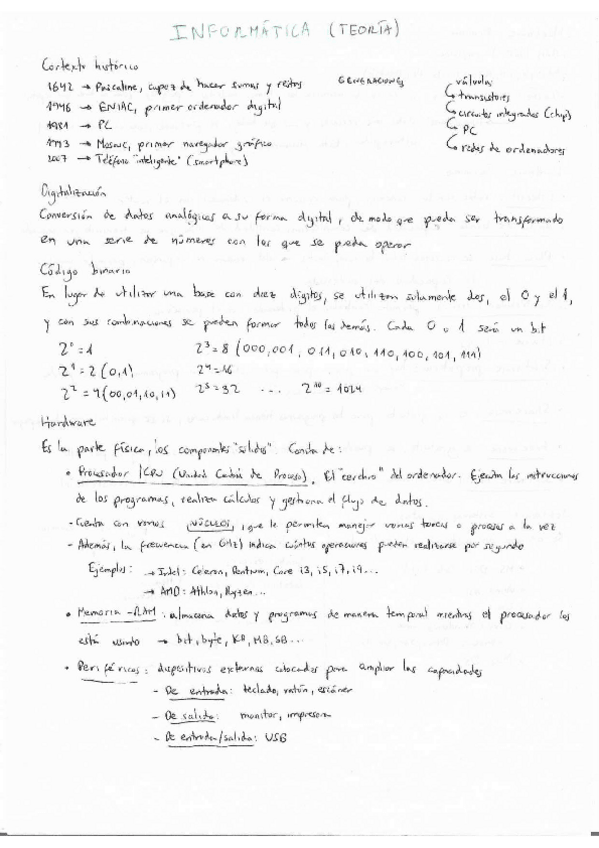 INFORMÁTICA (TEORÍA)
Contexto histórico
1642 → Pascaline, capaz de hacer sumas y restas
1946 → ENIAC, primer ordenador digital
1981 → PC
1993 → Mosaic, primer navegador gráfico
2007 → Teléfono "inteligente" (smartphone)
GENERACIONES
válvulas
transistores
circuitos integrados (chip)
PC
redes de ordenadores
Digitalización
Conversión de datos analógicos a su forma digital, de modo que pueda ser transformado
en una serie de números con los que se pueda operar
Código binario
En lugar de utilizar una base con diez dígitos, se utilizan solamente dos, el 0 y el 1,
y con sus combinaciones se pueden formar todos los demás. Cada 0 o 1 será un bit
2⁰ = 1 2³ = 8 (000, 001, 011, 010, 110, 100, 101, 111)
2¹ = 2 (0,1) 2⁴ = 16
2² = 4 (00,01,10,11) 2⁵ = 32 ... 2¹⁰ = 1024
Hardware
Es la parte física, los componentes "sólidos". Consta de:
• Procesador / CPU (Unidad Central de Proceso). El "cerebro" del ordenador. Ejecuta las instrucciones
de los programas, realiza cálculos y gestiona el flujo de datos.
- Cuenta con varios NÚCLEOS, que le permiten manejar varias tareas o procesos a la vez
- Además, la frecuencia (en GHz) indica cuántas operaciones pueden realizarse por segundo
Ejemplos: → Intel: Celeron, Pentium, Core i3, i5, i7, i9...
→ AMD: Athlon, Ryzen...
• Memoria -RAM: almacena datos y programas de manera temporal mientras el procesador los
está usando → bit, byte, KB, MB, GB...
• Periféricos: dispositivos externos colocados para ampliar las capacidades
- De entrada: teclado, ratón, escáner
- De salida: monitor, impresora
- De entrada/salida: USB